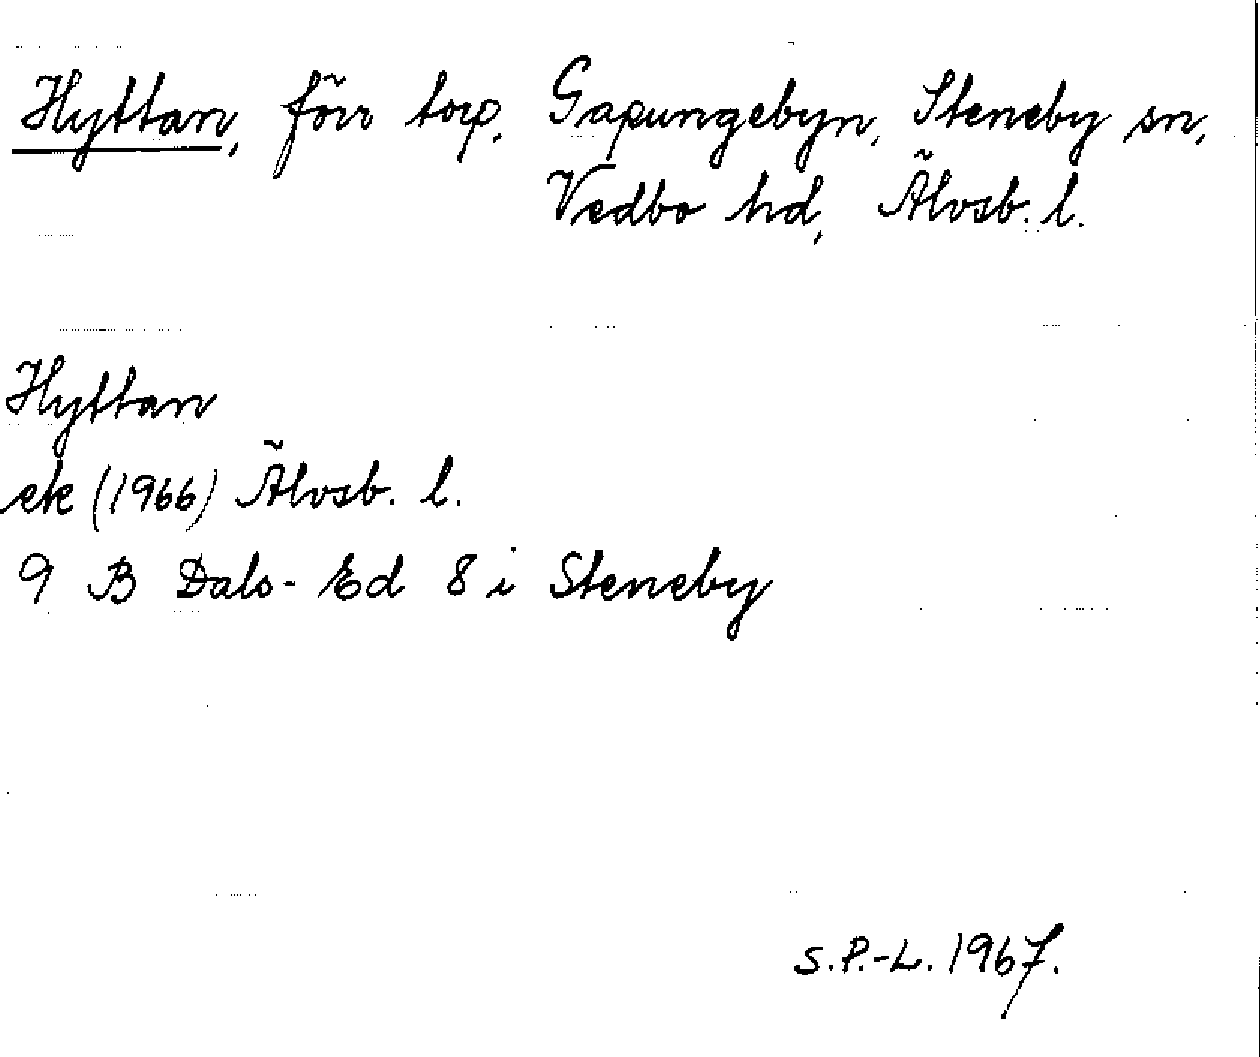 Hyttan, förr torp, Gapungebyn, Steneby sn,
Vedbo hd, Älvsb. l.
Hyttan
ek (1966) Älvsb. l.
9 B Dals-Ed 8 i Steneby
S.P.-L. 1967.